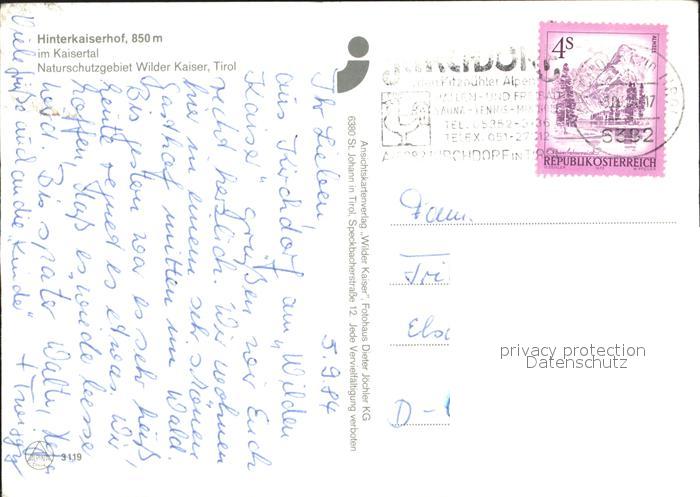 Hinterkaiserhof, 850 m
im Kaisertal
Naturschutzgebiet Wilder Kaiser, Tirol
5.9.84
Ihr Lieben,
aus Kirchdorf am "Wilden
Kaiser" grüßen wir Euch
recht herzlich. Wir wohnen
hier in einem sehr schönen
Gasthof mitten im Wald.
Bis gestern war es sehr heiß
heute regnet es etwas. Wir
hoffen, daß es wieder besser
wird. Bis später Walter,
Viele Grüße auch an die "Kinder"
Ansichtskartenverlag „Wilder Kaiser", Fotohaus Dieter Jöchler KG
6380 St. Johann in Tirol, Speckbacherstraße 12. Jede Vervielfältigung verboten
3119
4 S
REPUBLIK ÖSTERREICH
TEL. 05352-3136
6382
KIRCHDORF IN TIROL
Fam.
Tri
Els
D-
privacy protection
Datenschutz